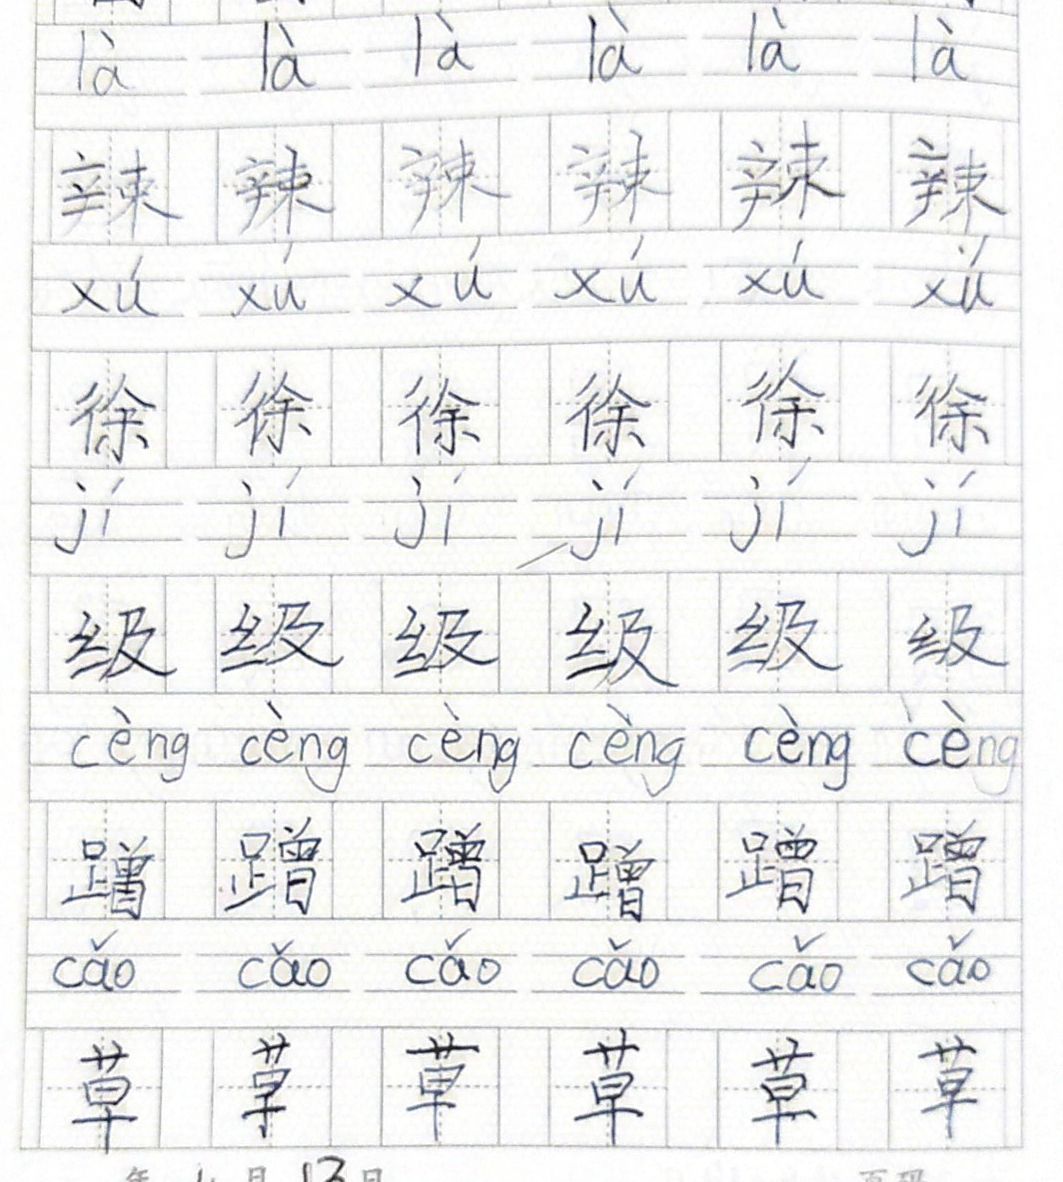 là là là là là là
辣 辣 辣 辣 辣 辣
xú xú xú xú xú xú
徐 徐 徐 徐 徐 徐
jí jí jí jí jí jí
级 级 级 级 级 级
cèng cèng cèng cèng cèng cèng
蹭 蹭 蹭 蹭 蹭 蹭
cǎo cǎo cǎo cǎo cǎo cǎo
草 草 草 草 草 草
年 月 13 日